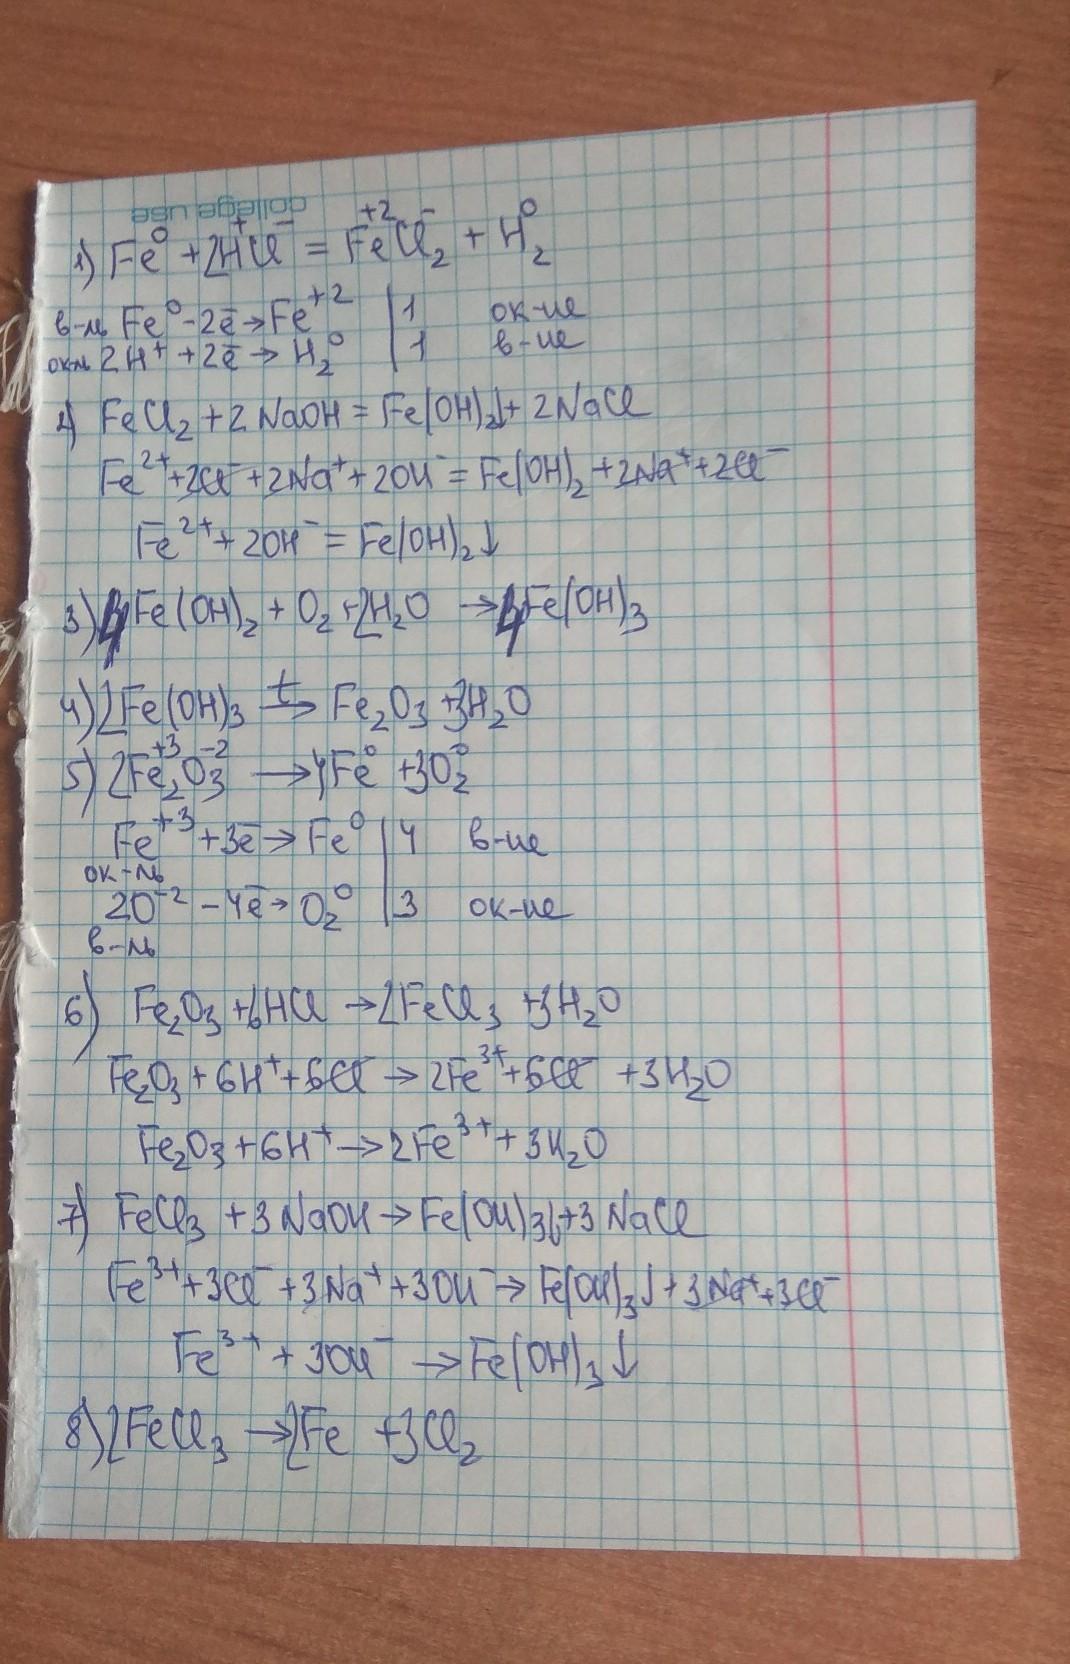 college use
1) Fe⁰ + 2H⁺Cl⁻ = Fe⁺²Cl⁻₂ + H₂⁰
в-ль Fe⁰ - 2e̅ → Fe⁺² | 1 ок-ие
ок-ль 2H⁺ + 2e̅ → H₂⁰ | 1 в-ие
2) FeCl₂ + 2NaOH = Fe(OH)₂↓ + 2NaCl
Fe²⁺ + 2Cl⁻ + 2Na⁺ + 2OH⁻ = Fe(OH)₂ + 2Na⁺ + 2Cl⁻
Fe²⁺ + 2OH⁻ = Fe(OH)₂↓
3) 4Fe(OH)₂ + O₂ + 2H₂O → 4Fe(OH)₃
4) 2Fe(OH)₃ →ᵗ Fe₂O₃ + 3H₂O
5) 2Fe⁺³₂O⁻²₃ → 4Fe⁰ + 3O₂⁰
Fe⁺³ + 3e̅ → Fe⁰ | 4 в-ие
ок-ль
2O⁻² - 4e̅ → O₂⁰ | 3 ок-ие
в-ль
6) Fe₂O₃ + 6HCl → 2FeCl₃ + 3H₂O
Fe₂O₃ + 6H⁺ + 6Cl⁻ → 2Fe³⁺ + 6Cl⁻ + 3H₂O
Fe₂O₃ + 6H⁺ → 2Fe³⁺ + 3H₂O
7) FeCl₃ + 3NaOH → Fe(OH)₃↓ + 3NaCl
Fe³⁺ + 3Cl⁻ + 3Na⁺ + 3OH⁻ → Fe(OH)₃↓ + 3Na⁺ + 3Cl⁻
Fe³⁺ + 3OH⁻ → Fe(OH)₃↓
8) 2FeCl₃ → 2Fe + 3Cl₂